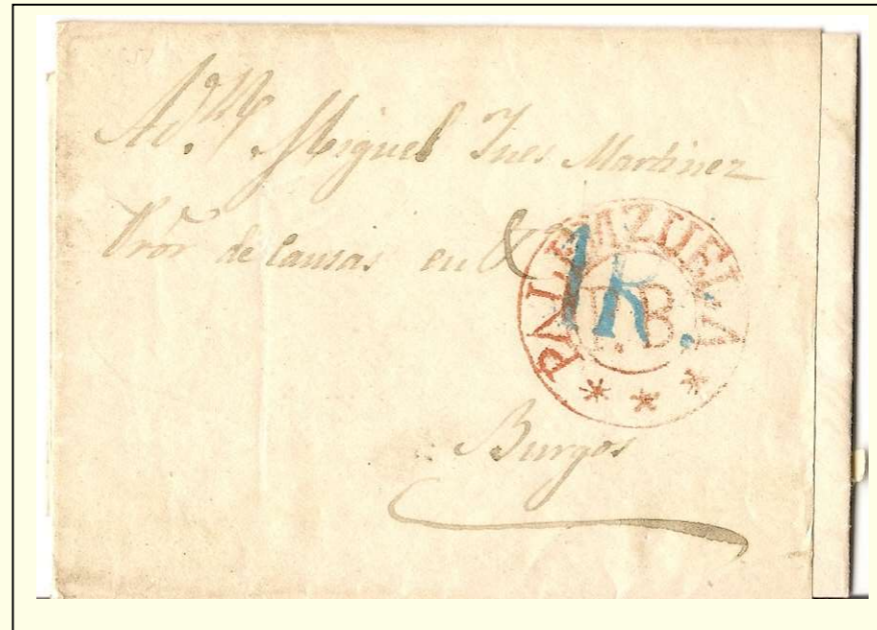 A D.n Miguel Ines Martinez
Prór de Causas en &
PALENZUELA
1R.
P.B.
* * *
Burgos